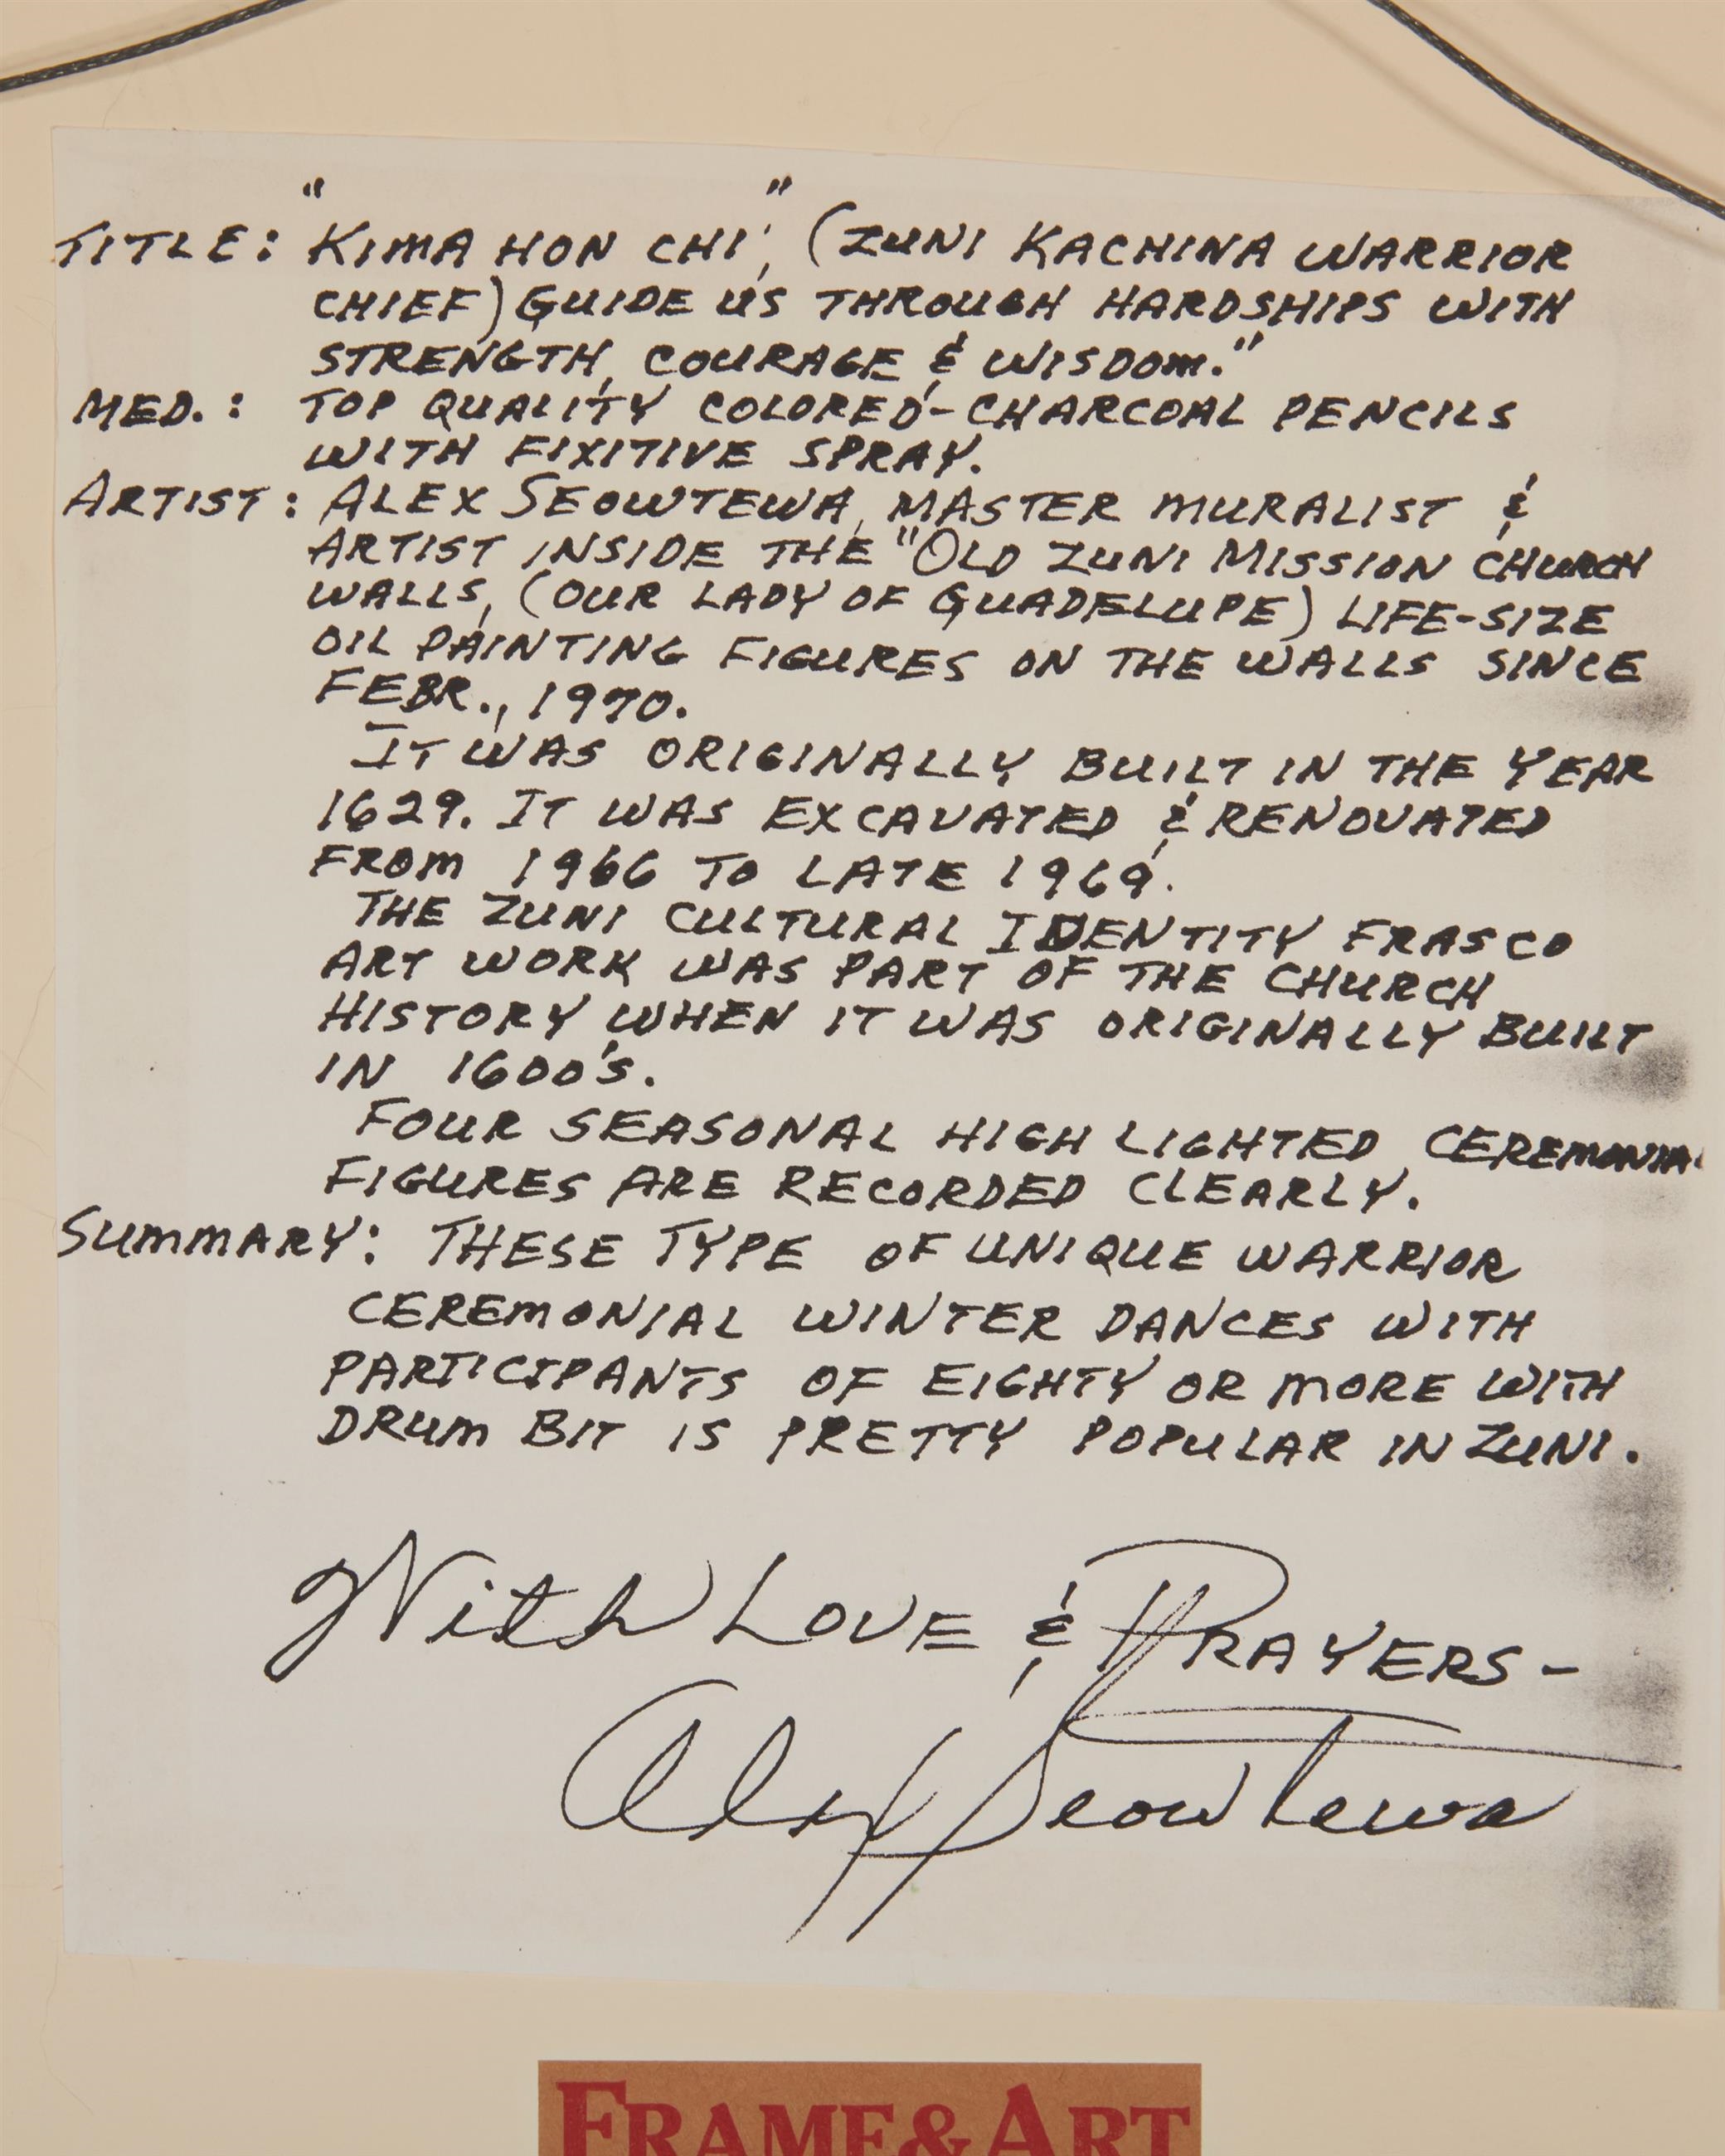 TITLE: "KIMA HON CHI", (ZUNI KACHINA WARRIOR
CHIEF) GUIDE US THROUGH HARDSHIPS WITH
STRENGTH, COURAGE & WISDOM."
MED.: TOP QUALITY COLORED-CHARCOAL PENCILS
WITH FIXITIVE SPRAY.
ARTIST: ALEX SEOWTEWA, MASTER MURALIST &
ARTIST INSIDE THE "OLD ZUNI MISSION CHURCH
WALLS, (OUR LADY OF GUADELUPE) LIFE-SIZE
OIL PAINTING FIGURES ON THE WALLS SINCE
FEBR., 1970.
IT WAS ORIGINALLY BUILT IN THE YEAR
1629. IT WAS EXCAVATED & RENOVATED
FROM 1966 TO LATE 1969.
THE ZUNI CULTURAL IDENTITY FRASCO
ART WORK WAS PART OF THE CHURCH
HISTORY WHEN IT WAS ORIGINALLY BUILT
IN 1600'S.
FOUR SEASONAL HIGH LIGHTED CEREMONIAL
FIGURES ARE RECORDED CLEARLY.
SUMMARY: THESE TYPE OF UNIQUE WARRIOR
CEREMONIAL WINTER DANCES WITH
PARTICIPANTS OF EIGHTY OR MORE WITH
DRUM BIT IS PRETTY POPULAR IN ZUNI.
With LOVE & PRAYERS-
Alex Seowtewa
FRAME & ART